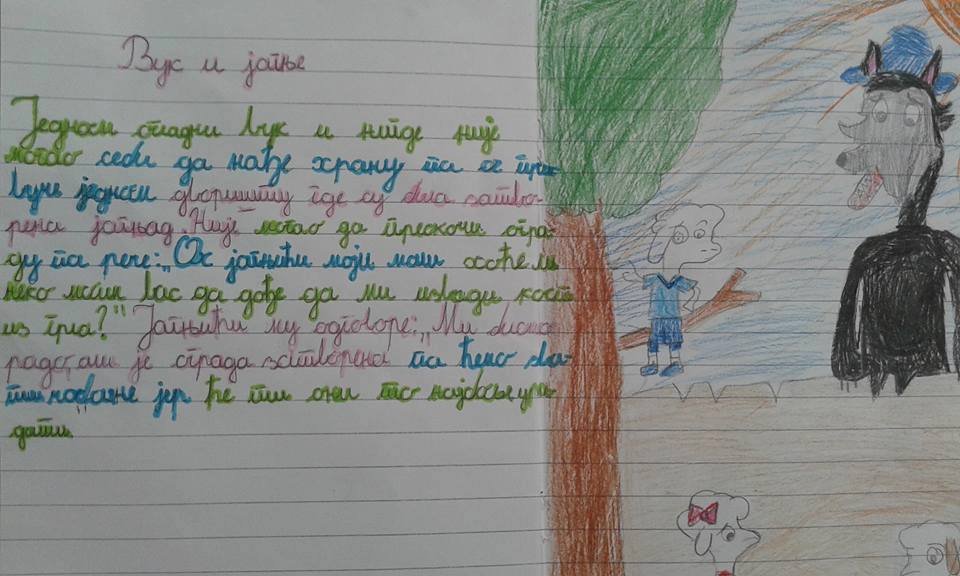 Вук и јагње
Једном гладни вук и нигде није
могао себи да нађе храну па се при-
вуче једном дворишту где су била затво-
рена јагњад. Није могао да прескочи огра-
ду па рече: „Ох јагњићи моји мали хоће ли
неко вас да дође да ми извади кост
из грла?" Јагњићи му одговоре: „Ми бисмо
радо, али је ограда затворена па ћемо зва-
ти јер ће ти они то најбоље ура-
дити.